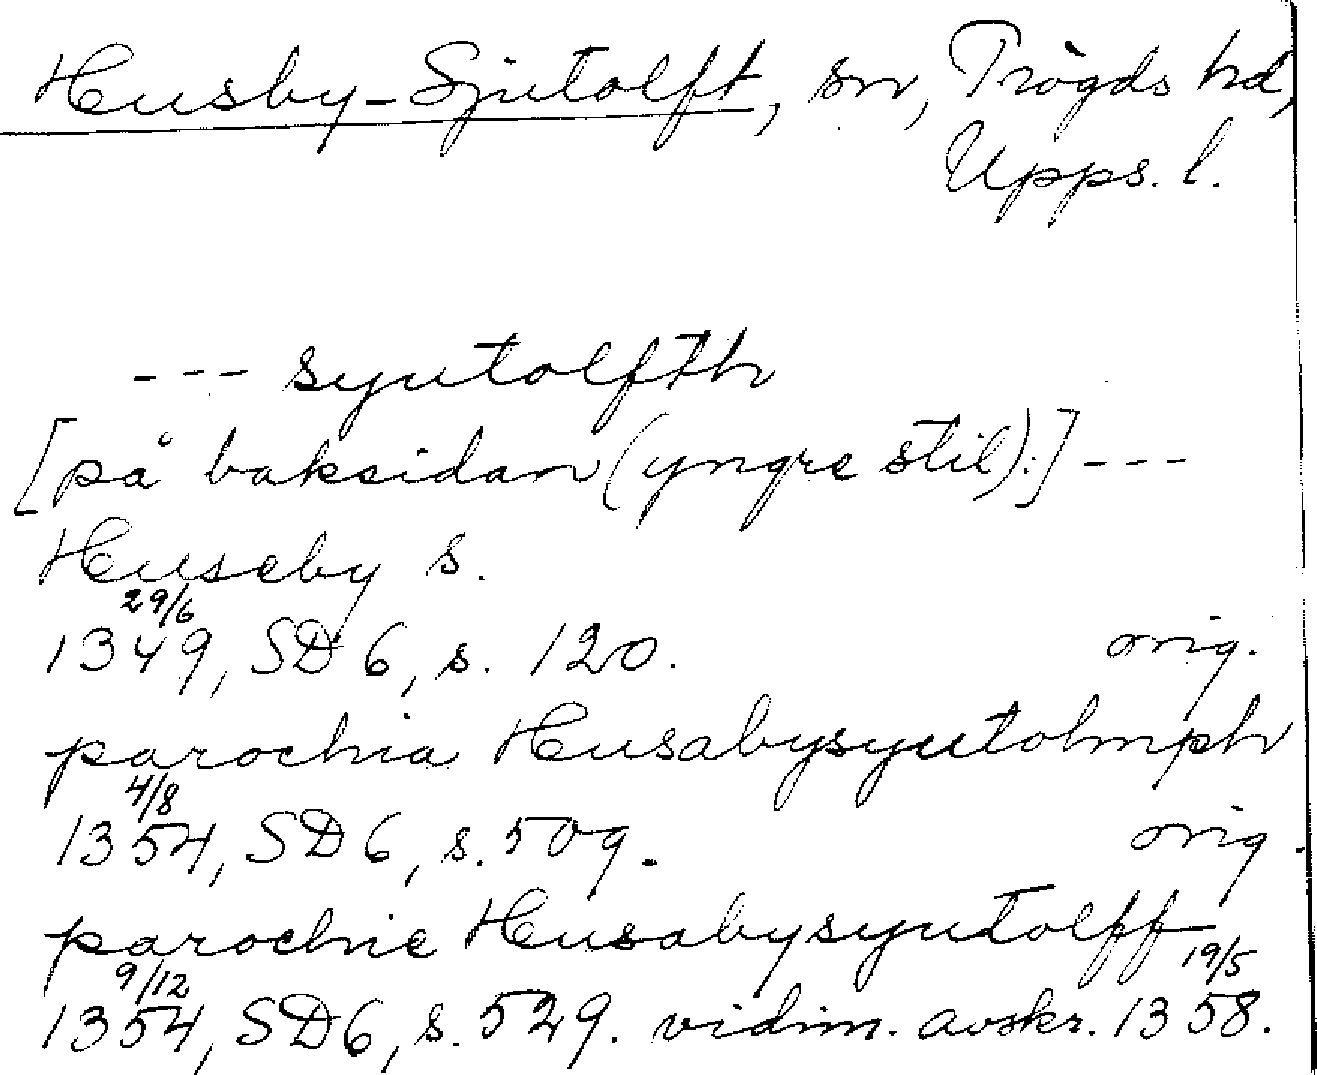 Husby-Sjutolft, sn, Trögds hd,
Upps. l.
--- syutolfth
[på baksidan (yngre stil):] ---
Huseby s.
29/6
1349, SD 6, s. 120. orig.
parochia Husabysyutolmph
4/8
1354, SD 6, s. 509. orig.
parochie Husabysyutolff
9/12 19/5
1354, SD 6, s. 529. vidim. avskr. 1358.